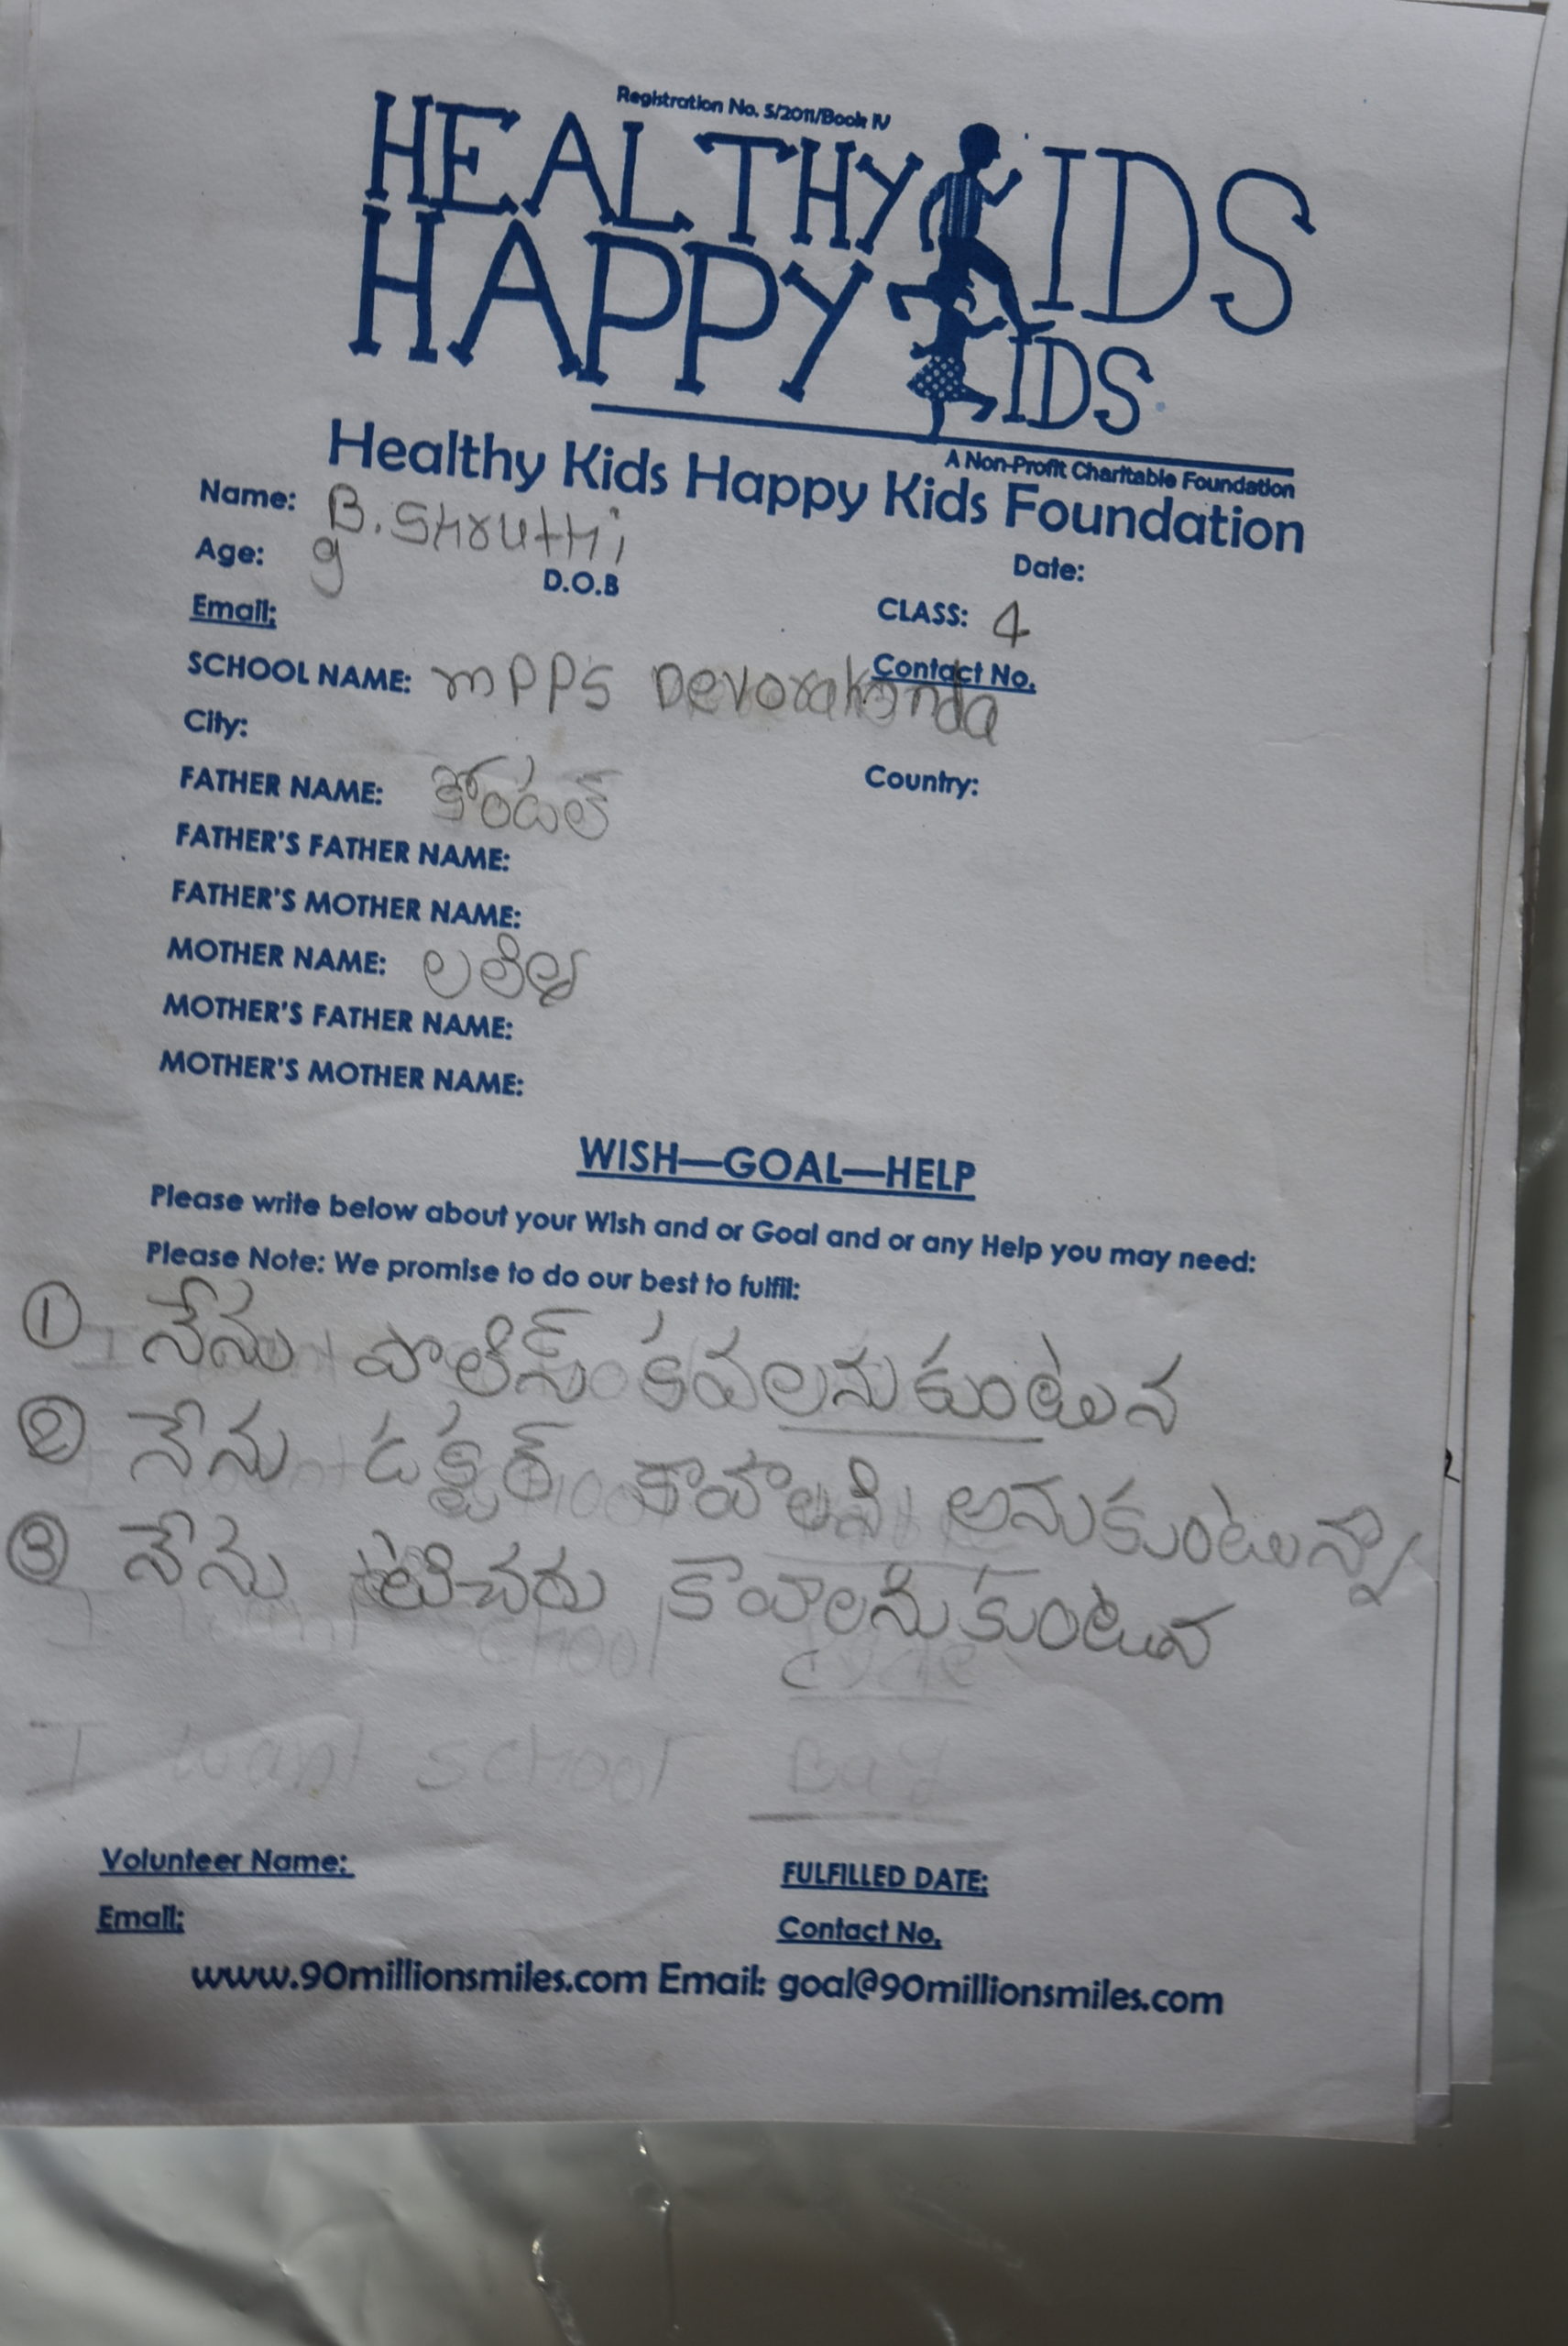 Registration No. 5/2011/Book IV
HEALTHY KIDS
HAPPY KIDS
A Non-Profit Charitable Foundation
Healthy Kids Happy Kids Foundation
Name: B. Shruthi
Date:
Age: 9 D.O.B CLASS: 4
Email: Contact No.
SCHOOL NAME: mPPS Devorakonda
City: Country:
FATHER NAME: కోండల్
FATHER'S FATHER NAME:
FATHER'S MOTHER NAME:
MOTHER NAME:
MOTHER'S FATHER NAME:
MOTHER'S MOTHER NAME:
WISH—GOAL—HELP
Please write below about your Wish and or Goal and or any Help you may need:
Please Note: We promise to do our best to fulfil:
① నేను పొలిస్ కవలనుకుంటున
② నేను డక్టర్ కావాలని అనుకుంటున్నా
③ నేను టిచరు కావాలనుకుంటున
I want school cycle
I want school Bag
Volunteer Name: FULFILLED DATE:
Email: Contact No.
www.90millionsmiles.com Email: goal@90millionsmiles.com